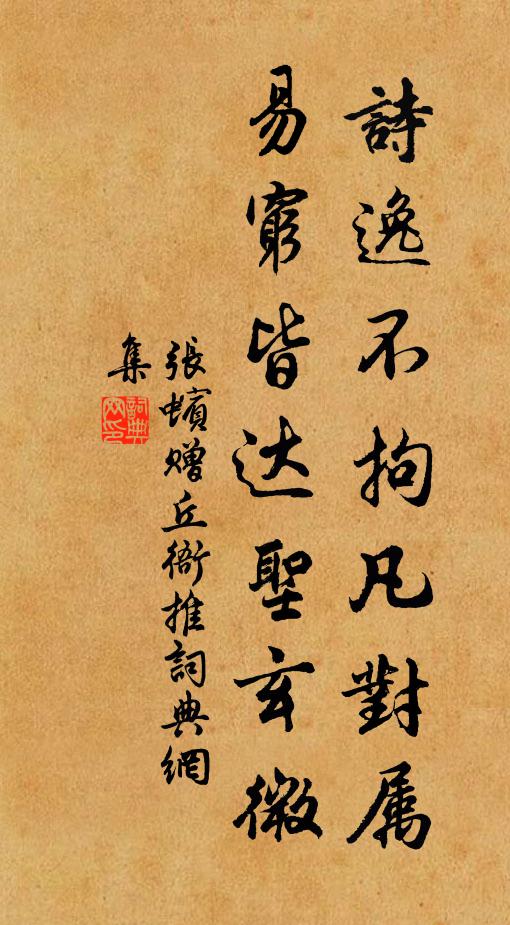 詩逸不拘凡對属
易窮皆达聖玄微
張蠙赠丘衙推詞典網
集
詞典網印